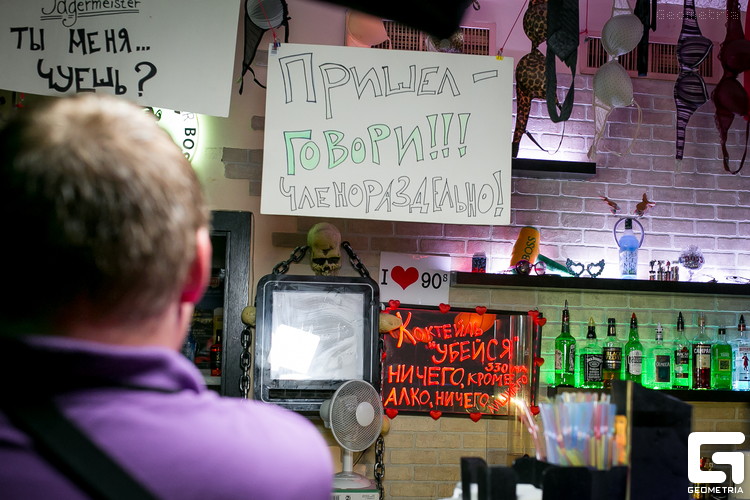 Jägermeister
ТЫ МЕНЯ...
ЧУЕШЬ?
ПРИШЕЛ -
ГОВОРИ!!!
ЧЛЕНОРАЗДЕЛЬНО!
I ❤ 90s
BOSS
КОКТЕЙЛЬ
"УБЕЙСЯ"
330
НИЧЕГО, КРОМЕ
АЛКО, НИЧЕГО
GEOMETRIA
Geometria